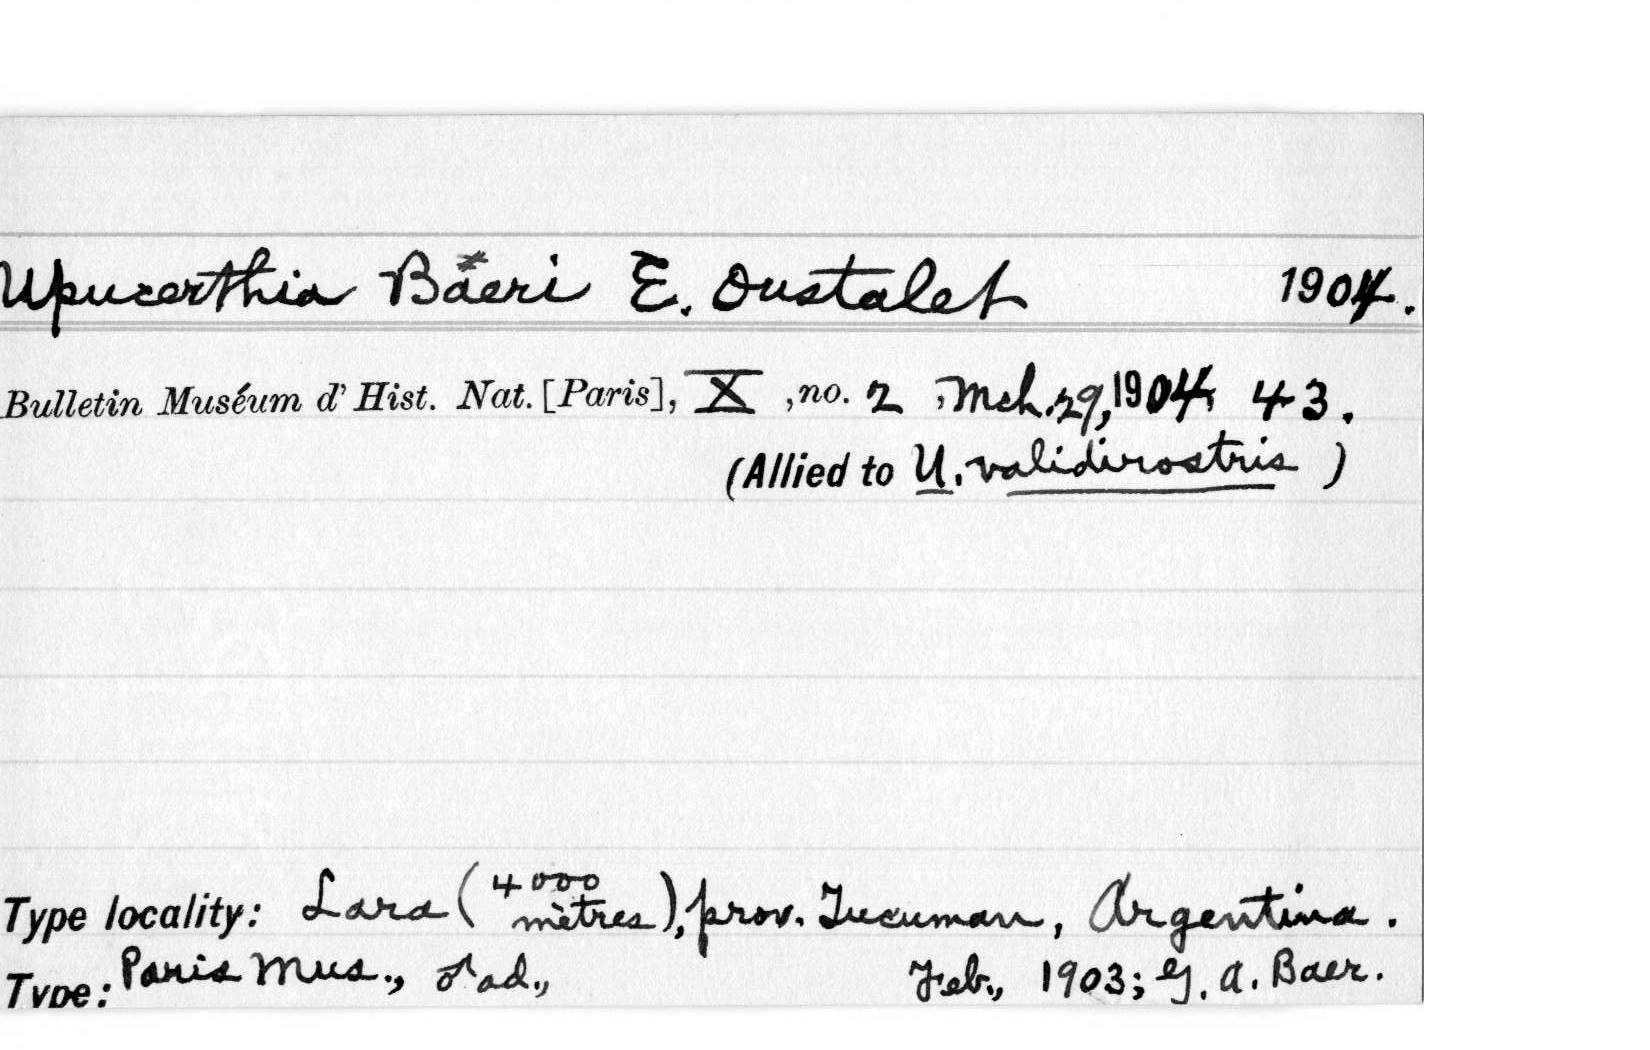 Upucerthia Baeri E. Oustalet 1904.
Bulletin Muséum d' Hist. Nat. [Paris], X, no. 2, Mch. 29, 1904, 43.
(Allied to U. validirostris)
Type locality: Lara (4000 mètres), prov. Tucuman, Argentina.
Type: Paris Mus., ♂ ad., Feb., 1903; G. A. Baer.